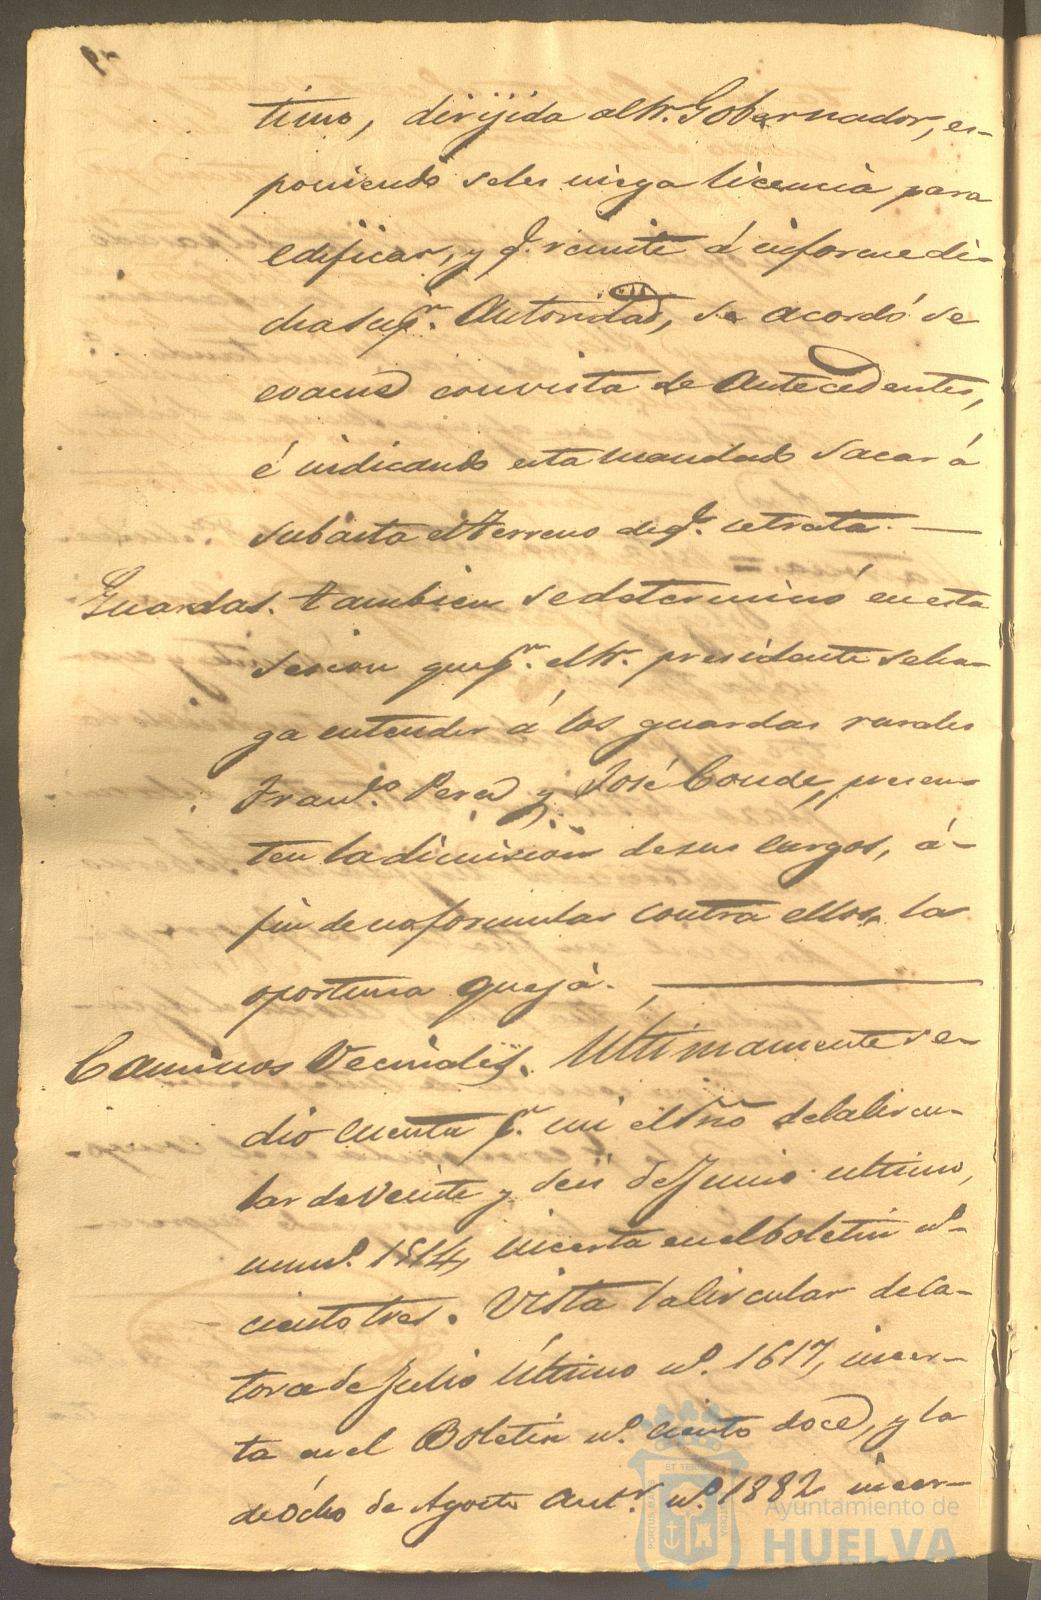 timo, dirijida al Sr. Gobernador, es-
poniendo se les niega licencia para
edificar, y q.e remite á informe di-
cha sup.r Autoridad, se acordó se
evacue con vista de Antecedentes,
é indicando esta mandado sacar á
subasta el terreno de q.e se trata.
Guardas. tambien se determinó en esta
sesion que p.r el Sr. presidente se ha-
ga entender á los guardas rurales
Fran.co Perea y José Conde, presen-
ten la dimision de sus cargos, á-
fin de no formular contra ellos, la
oportuna queja.
Caminos Vecinales. Ultimamente se-
dio cuenta p.r mi el Srio de la circu-
lar de veinte y seis de Junio ultimo,
num.o 1514, incerta en el boletin n.o
ciento tres. Vista la circular de ca-
torce de Julio Ultimo n.o 1617, incer-
ta en el Boletin n.o ciento doce, y la
de ócho de Agosto ant.r n.o 1882 incer-
Ayuntamiento de
HUELVA